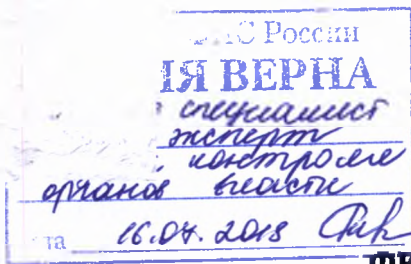 ФАС России
ИЯ ВЕРНА
специалист
эксперт
контроля
органов власти
та 16.07.2018